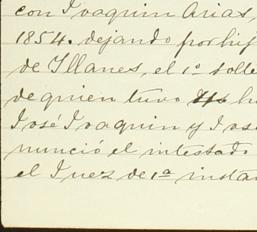 con Joaquin Arias,
1854. dejando por hij
de Illanes, el 1º solte
de quien tuvo
José Joaquin y José
nunció el intestado
el Juez de 1ª instan